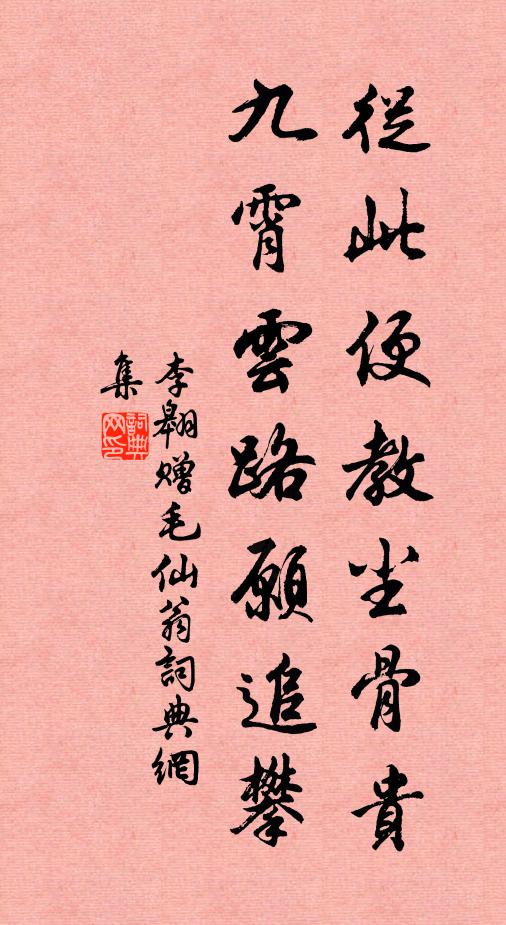 從此便教尘骨貴
九霄雲路願追攀
李翱赠毛仙翁詞典網
集
詞典
网印